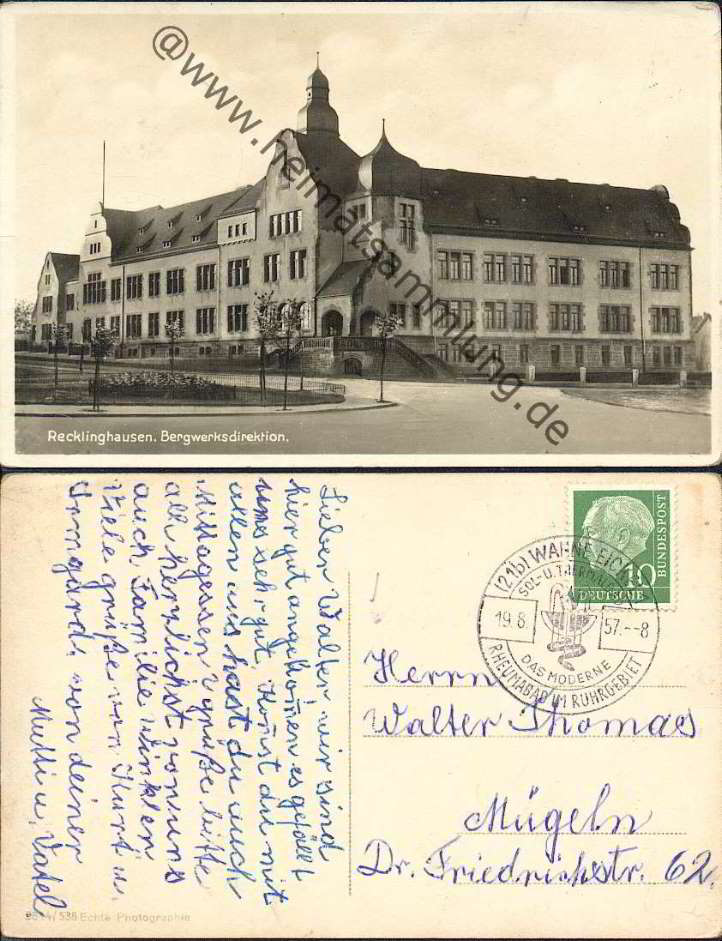 @www.heimatsammlung.de
Recklinghausen. Bergwerksdirektion.
Lieber Walter wir sind
hier gut angekom̄en es gefällt
uns sehr gut. Kanst du mit
allen uns hast du auch
Mittagessen? grüße bitte
all herzlichst von uns
auch Familie Winkler
Viele grüße von Kurt u.
Irmgard, von deiner
Mutti u. Vatel
(21b) WANNE-EICKEL
SOL- U. THERMALBAD
19.8. 57.--8
DAS MODERNE
RHEUMABAD IM RUHRGEBIET
10
DEUTSCHE
BUNDESPOST
Herrn
Walter Thomas
Mügeln
Dr. Friedrichstr. 62.
/538 Echte Photographie